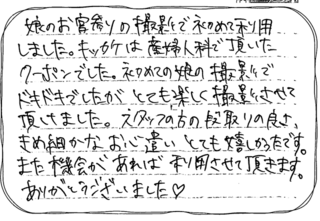 娘のお宮参りの撮影で初めて利用
しました。キッカケは産婦人科で頂いた
クーポンでした。初めての娘の撮影で
ドキドキでしたがとても楽しく撮影させて
頂けました。スタッフの方の段取りの良さ、
きめ細かなお心遣いとても嬉しかったです。
また機会があれば利用させて頂きます。
ありがとうございました♡